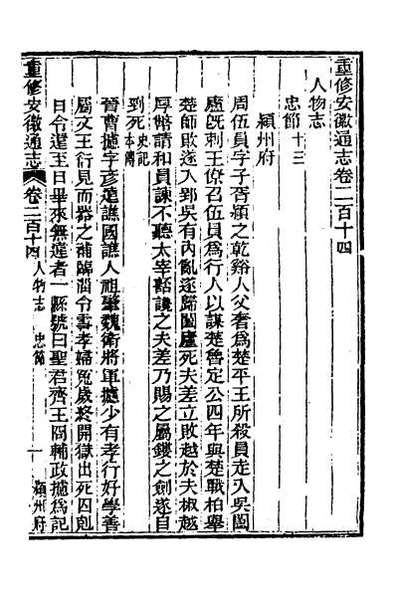 重修安徽通志卷二百十四
人物志
忠節十三
潁州府
周伍員字子胥潁之乾谿人父奢爲楚平王所殺員走入吳闔
廬旣刺王僚召伍員爲行人以謀楚魯定公四年與楚戰柏舉
楚師敗遂入郢吳有內亂遂歸闔廬死夫差立敗越於夫椒越
厚幣請和員諫不聽太宰嚭讒之夫差乃賜之屬鏤之劍遂自
到死史記本傳
晉曹摅字彥遠譙國譙人祖肇魏衛將軍摅少有孝行好學善
屬文王衍見而器之補臨淄令雪孝婦冤歲終開獄出死囚剋
日令還至日畢來無違者一縣號曰聖君齊王冏輔政摅爲記
重修安徽通志
卷二百十四 人物志 忠節 一 潁州府